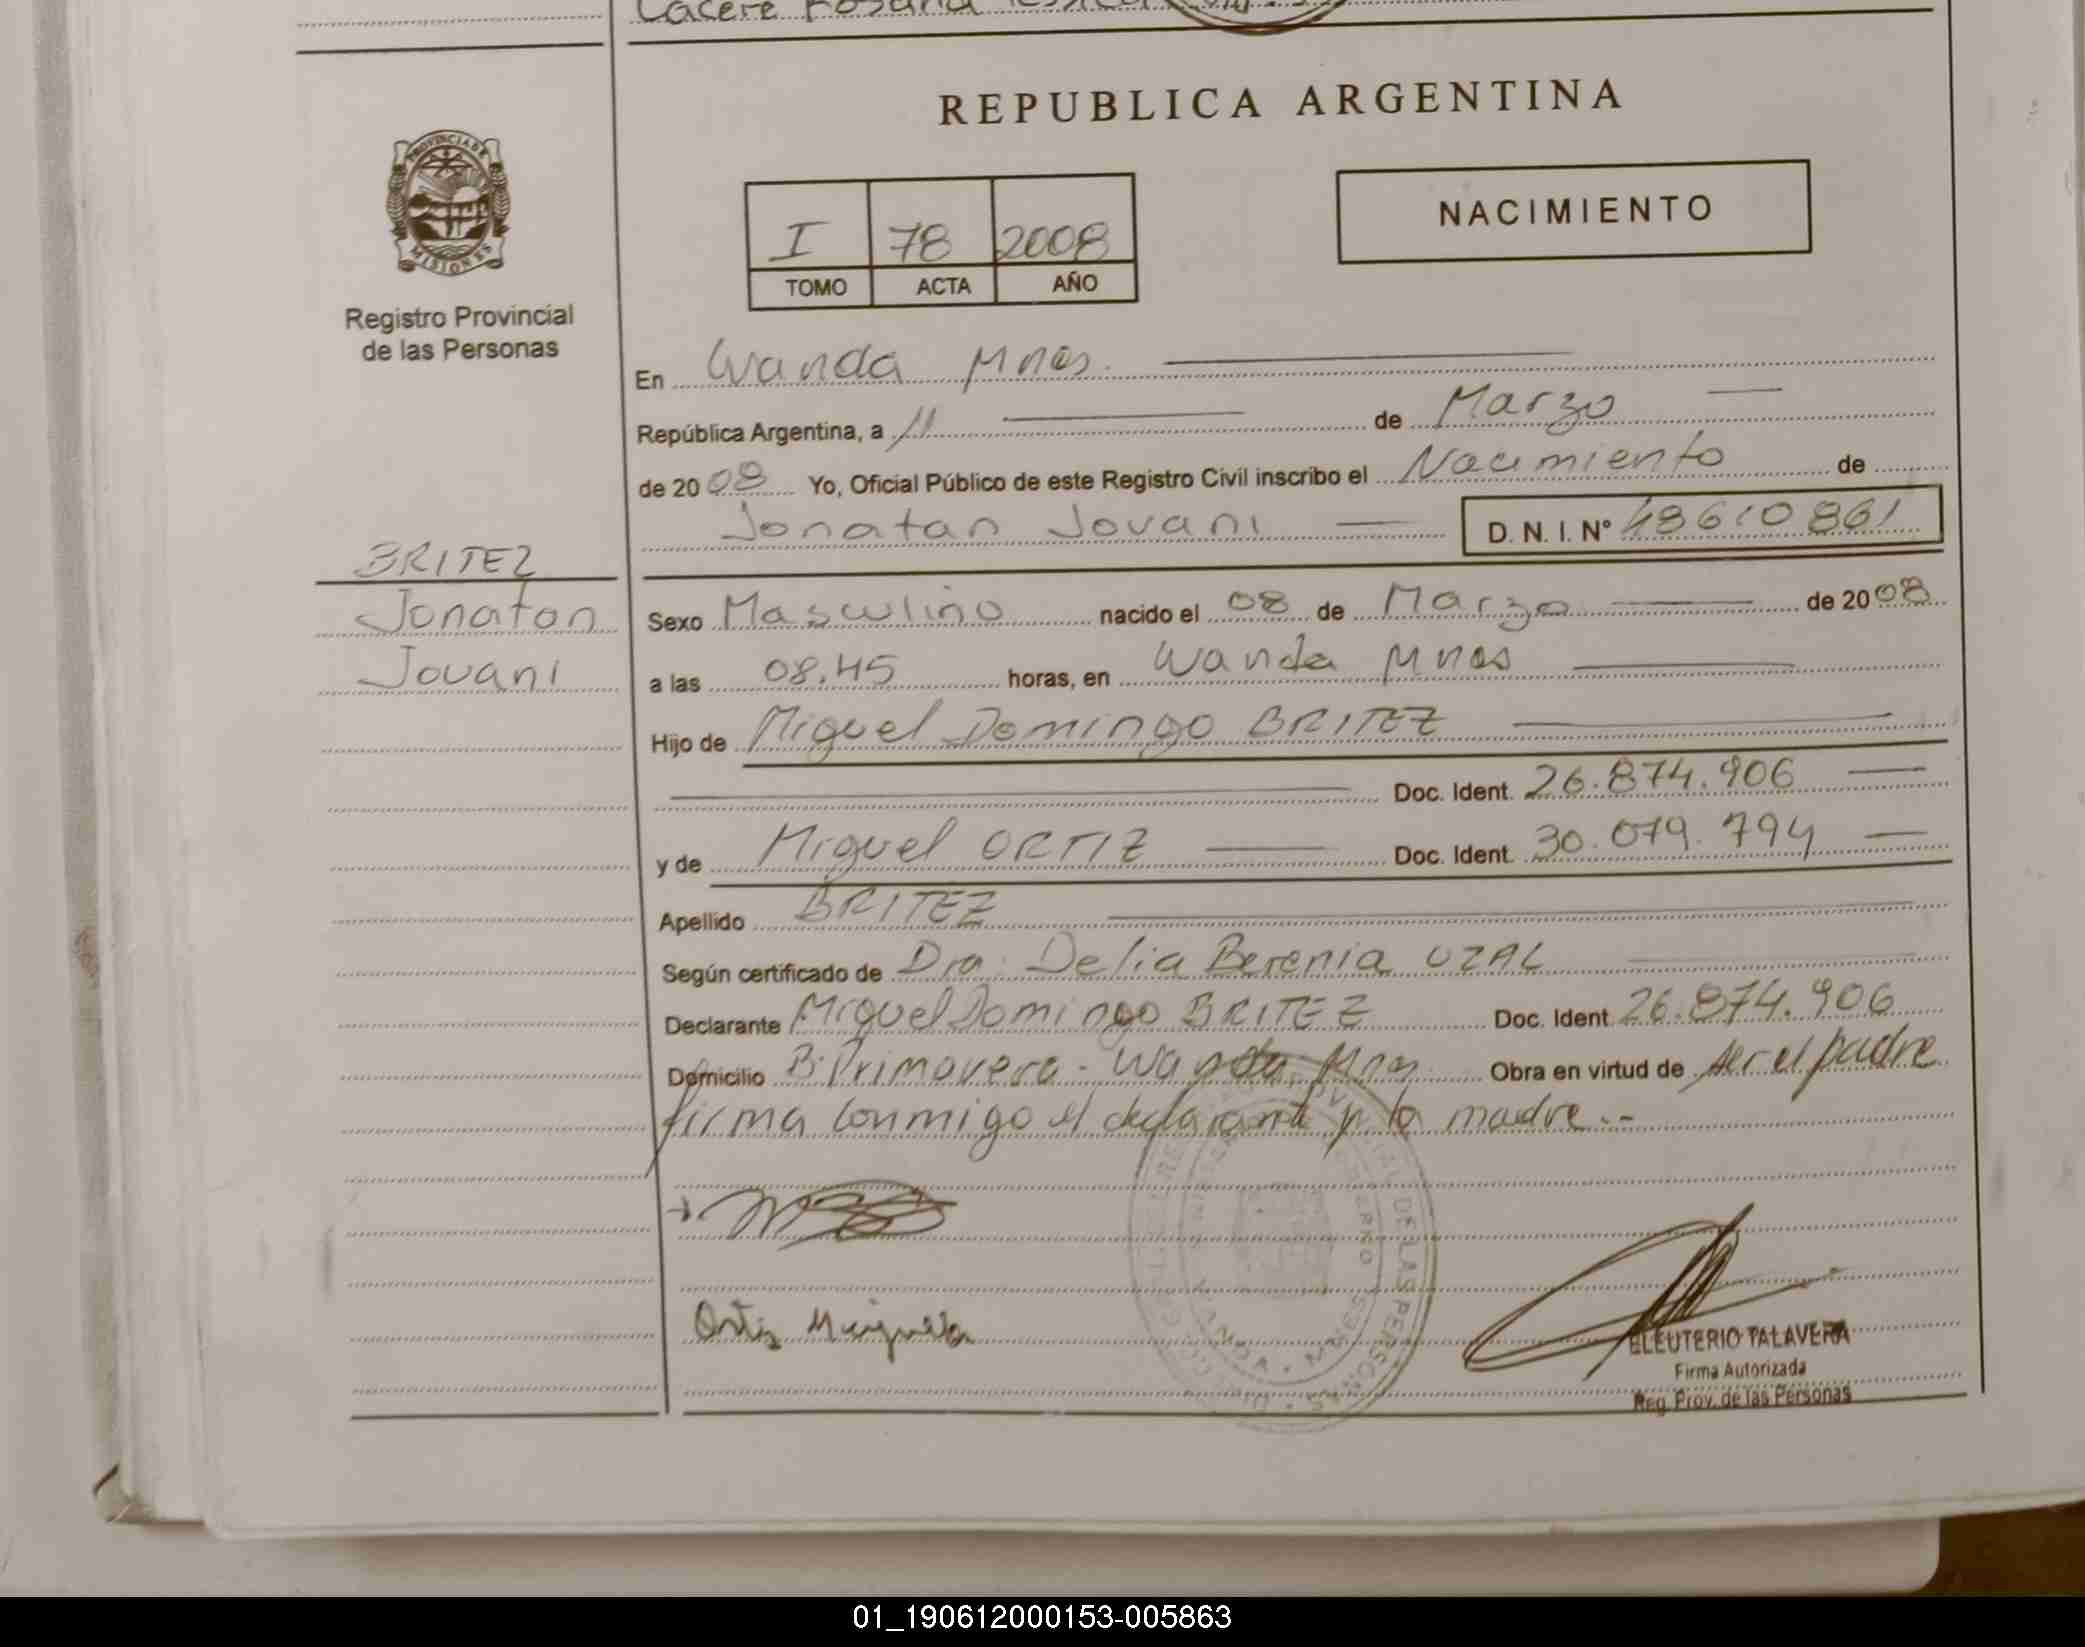 Cacere Rosana
REPUBLICA ARGENTINA
PROVINCIA DE
MISIONES
Registro Provincial
de las Personas
I 78 2008
TOMO ACTA AÑO
NACIMIENTO
En Wanda Mnes.
República Argentina, a 11 de Marzo
de 2008 Yo, Oficial Público de este Registro Civil inscribo el Nacimiento de
Jonatan Jovani D. N. I. Nº 48610861
BRITEZ
Jonatan
Jovani
Sexo Masculino nacido el 08 de Marzo de 2008
a las 08.45 horas, en Wanda Mnes
Hijo de Miguel Domingo BRITEZ
Doc. Ident. 26.874.906
y de Miguel ORTIZ Doc. Ident. 30.079.794
Apellido BRITEZ
Según certificado de Dra. Delia Berenia UZAL
Declarante Miguel Domingo BRITEZ Doc. Ident 26.874.906
Domicilio Bº Primavera - Wanda Mnes Obra en virtud de ser el padre
firma conmigo el declarante y la madre.-
Ortiz Miguela
ELEUTERIO TALAVERA
Firma Autorizada
Reg. Prov. de las Personas
01_190612000153-005863